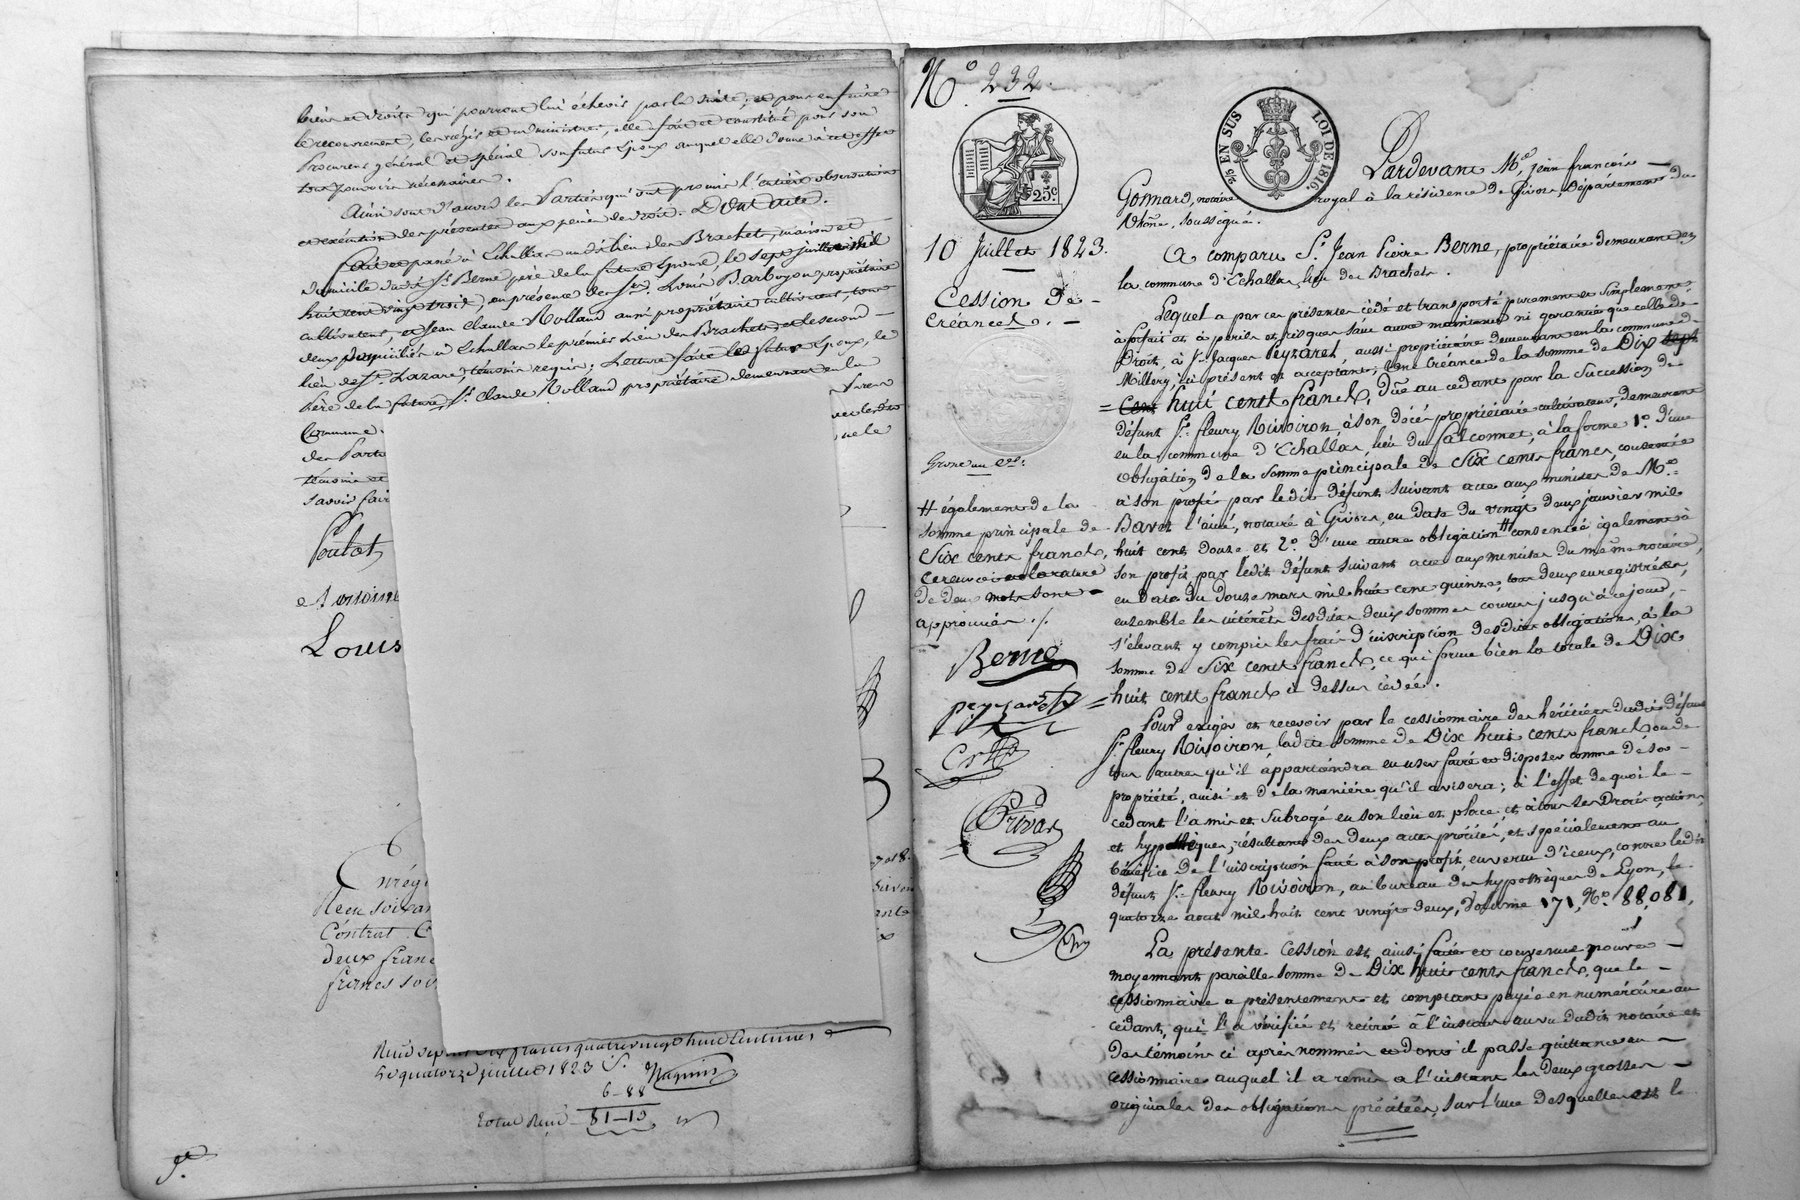 biens et droits qui pourront lui échevir par la suite, et pour en faire
le recouvrement, les régir et administrer, elle a fait et constitué pour son
Procureur général et spécial son futur Epoux auquel elle donne à cet effet
tous pouvoirs nécessaires.
Ainsi sont d'accord les Parties qui ont promis l'entière observation
et exécution des présentes aux peines de droit. Dont acte.
Fait et passé à Echallas au dit lieu des Brachets, maison et
domicile dudit Sr. Berne père de la future Epouse, le sept juillet mil
huit cent vingt trois, en présence de Srs. Louis Barboyon propriétaire
cultivateur, et Jean Claude Rolland aussi propriétaire cultivateur, tous
deux domiciliés à Echallas le premier lieu des Brachets, et le second
lieu de St. Lazare, témoins requis. Lecture faite les futurs Epoux, le
Père de la future, Sr. Claude Rolland propriétaire demeurant en la
Commune
des Parts
témoins et
savoir fair
Poulat
Antoine
Louis
Enrégi
Reçu soixan
Contrat
deux franc
francs soix
Reçu sept six francs quatrevingt huit centimes
le quatorze juillet 1823
6-88
Total Reçu 81-15
No. 232.
25c
2/5 EN SUS LOI DE 1816
10 Juillet 1823.
Cession de
créances.
Grosse au ces:
# également de la
somme principale de
Six cents francs,
ce renvoi et la rature
de deux mots sont
approuvés ./.
Berne
peyzaret
Privas
Pardevant Me. Jean françois
Gonnard, notaire royal à la résidence de Givors, Département du
Rhône, soussigné.
A comparu Sr. Jean Pierre Berne, propriétaire demeurant en
la commune d'Echallas, lieu des Brachets.
Lequel a par ces présentes cédé et transporté purement et simplement,
à forfait et à périls et risques sans autre maintenue ni garantie que celle de
droit, à Sr. Jacques Peyzaret, aussi propriétaire demeurant en la commune de
Millery, ici présent et acceptant, une créance de la somme de Dix sept
= Cent huit cents francs, düe au cédant par la succession de
défunt Sr. fleury Rivoiron, à son décès propriétaire cultivateur, demeurant
en la commune d'Echallas, lieu du Falconnet, à la forme 1o. d'une
obligation de la somme principale de Six cents francs, consentie
à son profit par ledit défunt suivant acte aux minutes de Me.
Bavet l'ainé, notaire à Givors, en date du vingt deux janvier mil
huit cent douze, et 2o. d'une autre obligation # consentie également à
son profit par ledit défunt suivant acte aux minutes du même notaire,
en date du douze mars mil huit cent quinze, tous deux enregistrés,
ensemble les intérêts desdites deux sommes courus jusqu'à ce jour,
s'élevant y compris les frais d'inscription desdites obligations, à la
somme de Six cents francs, ce qui forme bien la totale de Dix
= huit cents francs ci dessus cédée.
Pour exiger et recevoir par le cessionnaire des héritiers dudit défunt
Sr. fleury Rivoiron, ladite somme de Dix huit cents francs ou de
tous autres qu'il appartiendra en user faire et disposer comme de sa
propriété, ainsi et de la manière qu'il avisera; à l'effet de quoi le
cédant l'a mis et subrogé en son lieu et place, et à tous ses Droits, actions,
et hypothèques, résultans des deux actes précités, et spécialement au
bénéfice de l'inscription faite à son profit, en vertu d'iceux, contre ledit
défunt Sr. fleury Rivoiron, au bureau des hypothèques de Lyon, le
quatorze aout mil huit cent vingt deux, Volume 171, No. 88,081.
La présente Cession est ainsi faite et convenue pour et
moyennant pareille somme de Dix huit cents francs, que le
cessionnaire a présentement et comptant payée en numéraire au
cédant, qui l'a vérifiée et retirée à l'instant au vu dudit notaire et
des témoins ci après nommés et dont il passe quittance au
cessionnaire auquel il a remis à l'instant les deux grosses
originales des obligations précitées, sur l'une desquelles est le